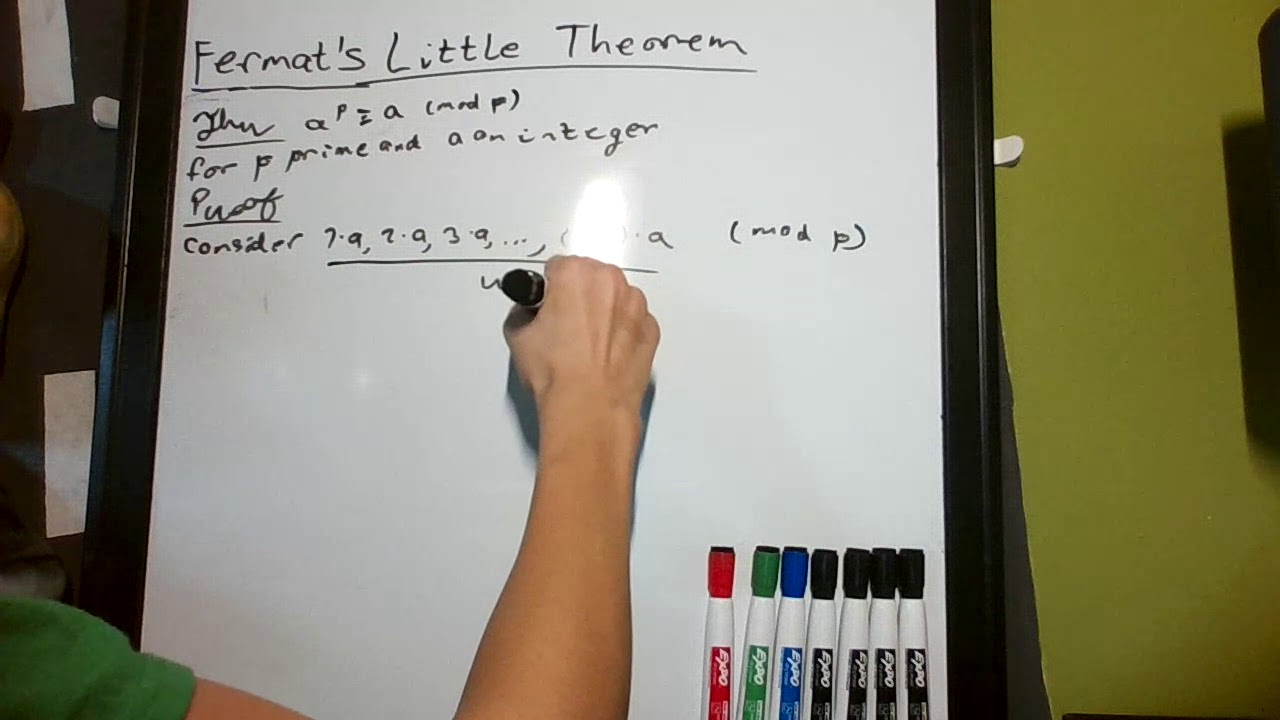 Fermat's Little Theorem
Thm a^p ≡ a (mod p)
for p prime and a an integer
Proof
Consider 1·a, 2·a, 3·a, ..., ( ) · a (mod p)
EXPO EXPO EXPO EXPO EXPO EXPO EXPO